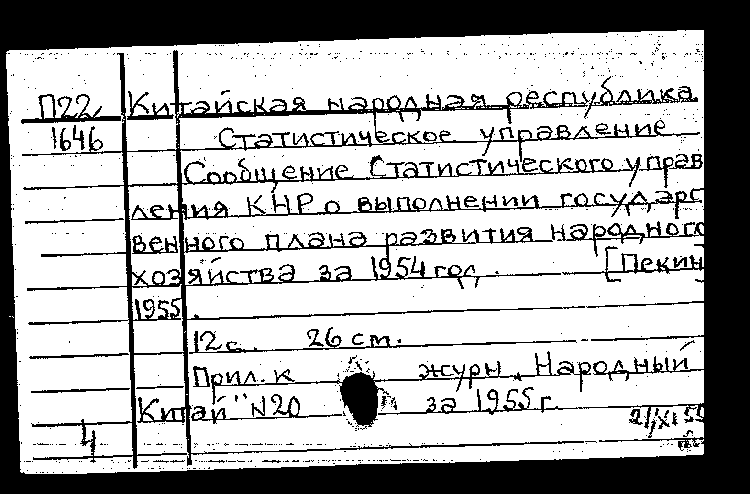 П22, Китайская народная республика.
1646 Статистическое управление
Сообщение Статистического управ
ления КНР о выполнении государс
венного плана развития народного
хозяйства за 1954 год. [Пекин]
1955.
12 с. 26 cm.
Прил. к журн. „Народный
Китай" N20 за 1955 г.
4 21/XI 55